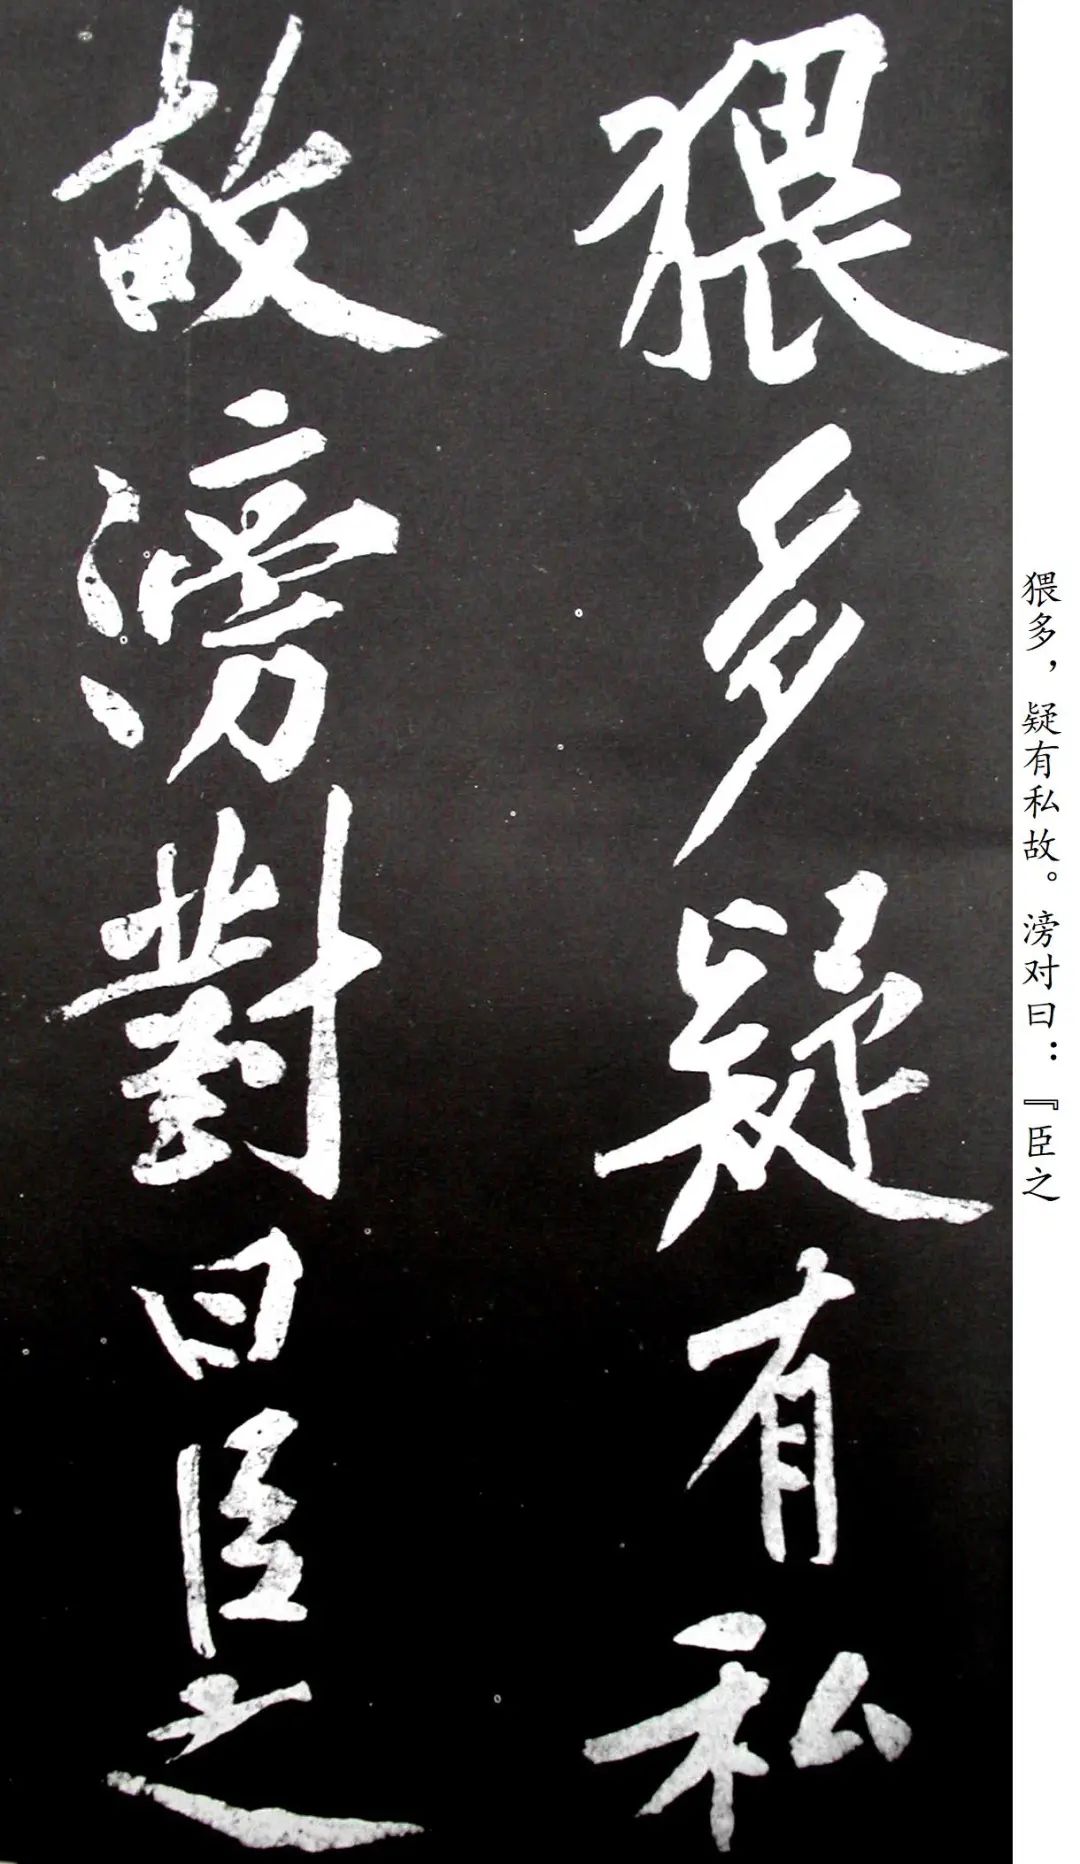 猥多疑有私
故滂對曰臣之
猥多，疑有私故。滂对曰：『臣之